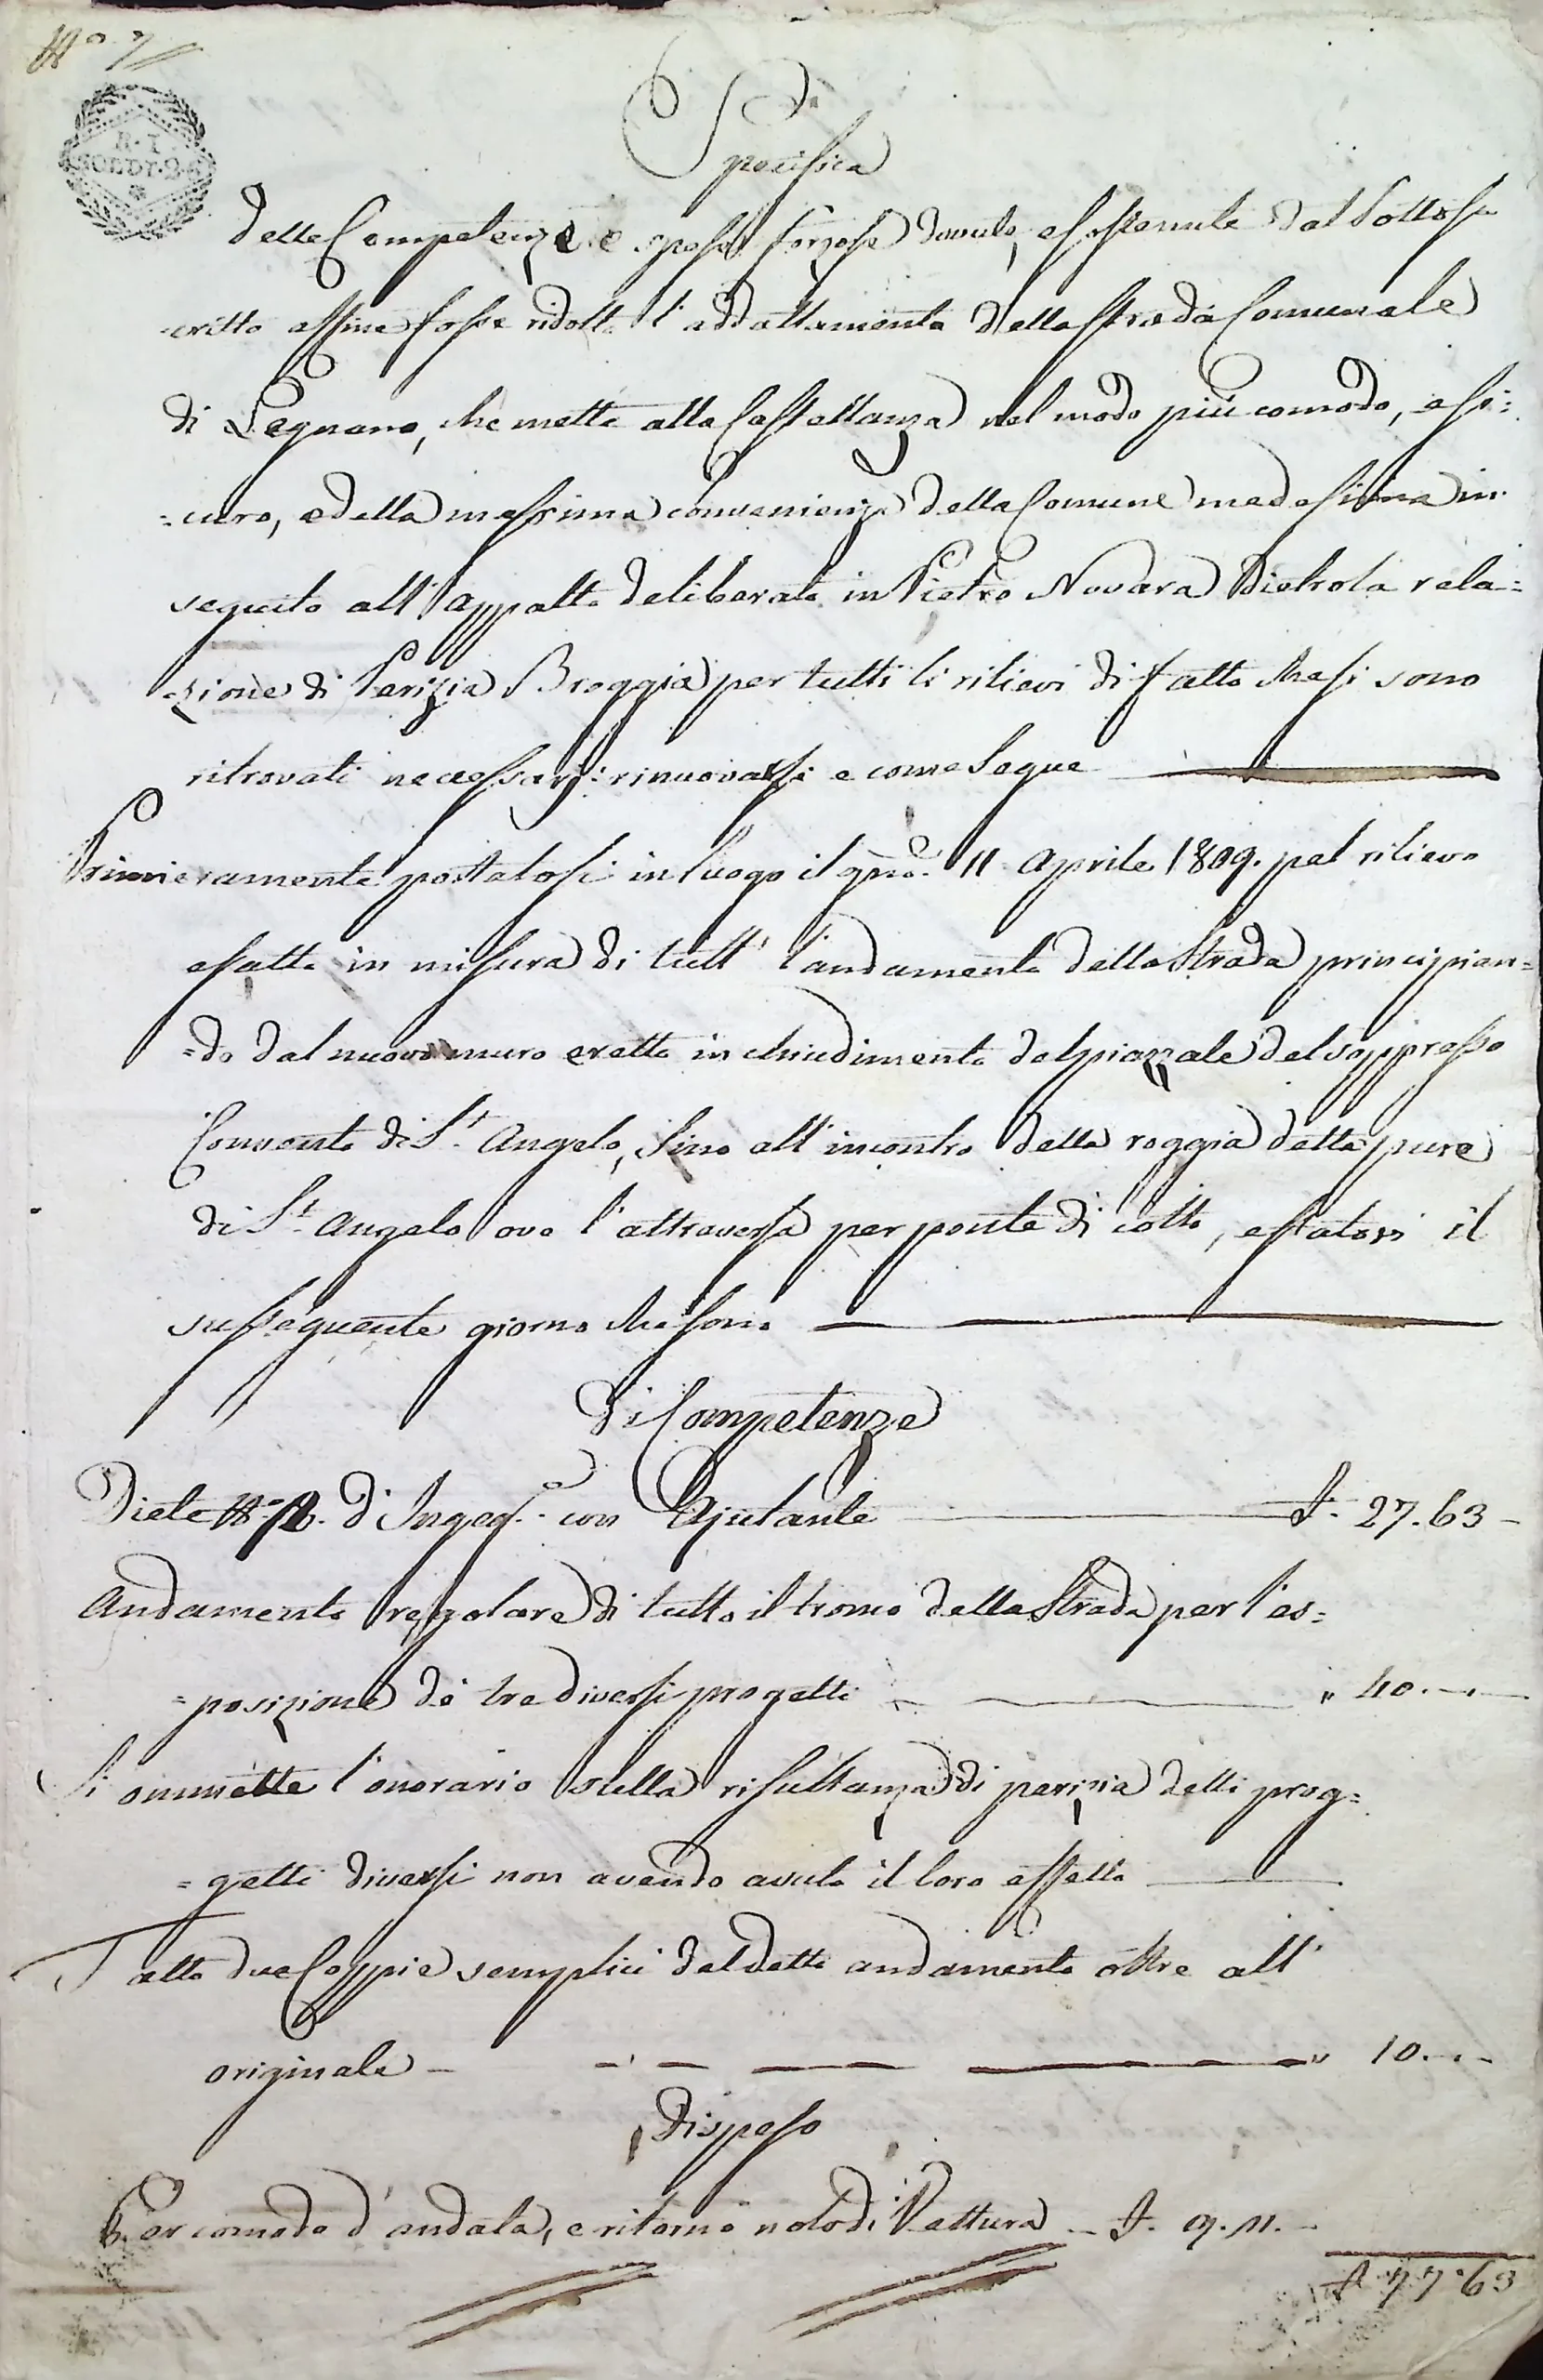 N.º 7
R. I.
SOLDI. 24
Specifica
delle Competenze e spese forzose dovute, e sostenute dal Sottos-
critto affine fosse ridotto l'addattamento della strada Comunale
di Legnano, che mette alla Castellanza nel modo più comodo, e si:
=curo, e della massima convenienza della Comune medesima in
seguito all'appalto deliberato in Pietro Novara dietro la rela=
zione di Perizia Broggia per tutti li rilievi di fatto che si sono
ritrovati necessarj rinuovarsi e come segue
Primieramente portatosi in luogo il gno. 11 Aprile 1809. pel rilievo
esatto in misura di tutt' l'andamento della Strada principian=
=do dal nuovo muro eretto in chiudimento del piazzale del soppresso
Convento di S.t Angelo, sino all'incontro della roggia detta pure
di S.t Angelo ove l'attraversa per ponte di cotto, e statovi il
susseguente giorno che sono
Di Competenze
Diete N.º 2. d'Ingeg.e con Ajutante £. 27.63 -
Andamento regolare di tutto il tronco della Strada per l'es=
=posizione de tre diversi progetti " 40.--
Si ommette l'onorario della risultanza di perizia delli prog=
=getti diversi non avendo avuto il loro effetto
Fatto due Coppie semplici del detto andamento oltre all'
originale " 10.--
Di spese
Per comodo d'andata, e ritorno nolo di Vettura £. 9.11.-
£ 77.63